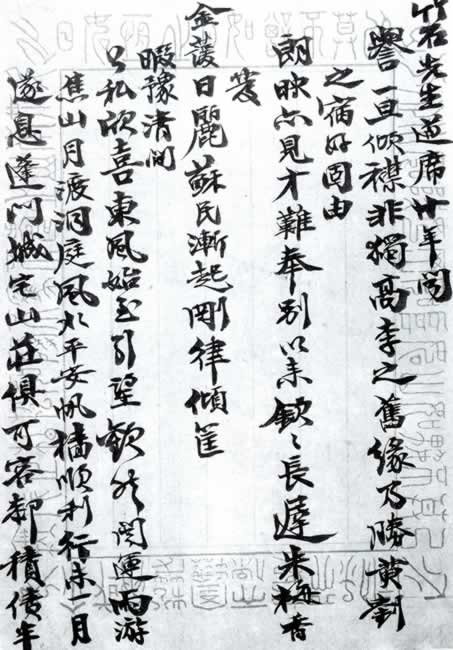 竹石先生道席廿年聞
譽一旦傾襟非獨高李之舊緣乃勝黃劉
之宿好固由
朗映亦見才難奉別以來欽〻長遲朱梅香
發
金護日麗蘇民漸起剛律傾筐
暇豫清閒
以私欣喜東風始至引望歡然闓運兩游
焦山月渡洞庭風水平安帆檣順利行未一月
遂息蓬門城宅山莊俱可容卻積債半